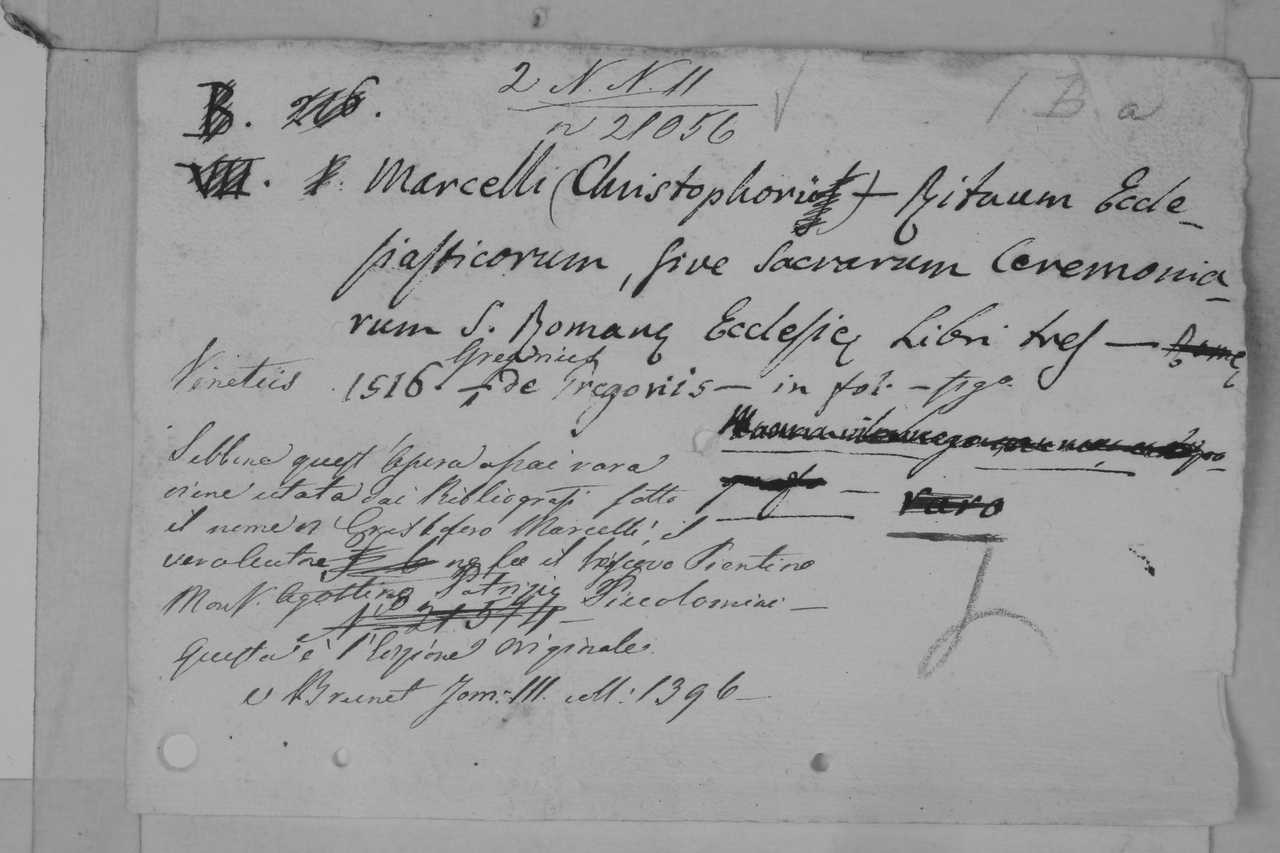 2 N. N. 11
B. 216.
n 21056
1 B. a
VIII. Marcelli (Christophori) — Rituum Eccle-
siasticorum, sive Sacrarum Ceremonia-
rum S. Romanę Ecclesię Libri tres — Romę
Gregorius
Venetiis 1516 — de Gregoriis — in fol. — figo
Sebbene quest'Opera assai rara
viene citata dai Bibliografi sotto
il nome di Cristoforo Marcelli, il
vero Autore ne fu il Vescovo Pientino
Mons. Agostino Patrizio Piccolomini —
n° 21374 —
Questa è l'Edizione Originale.
V Brunet Tom: III. coll: 1396 —
— raro